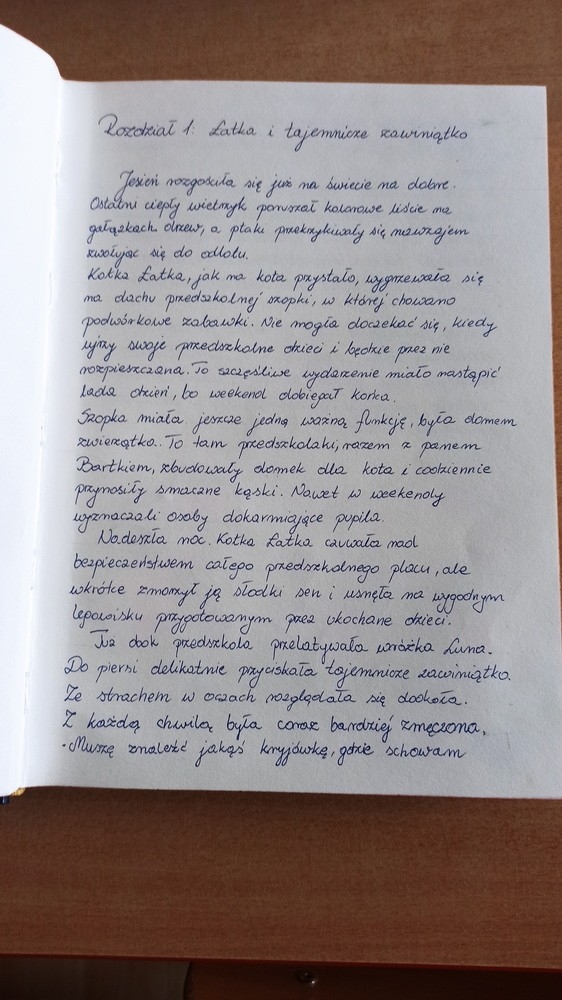 Rozdział 1: Łatka i tajemnicze zawiniątko
Jesień rozgościła się już na świecie na dobre.
Ostatni ciepły wietrzyk poruszał kolorowe liście na
gałązkach drzew, a ptaki przekrzykiwały się nawzajem
zwołując się do odlotu.
Kotka Łatka, jak na kota przystało, wygrzewała się
na dachu przedszkolnej szopki, w której chowano
podwórkowe zabawki. Nie mogła doczekać się, kiedy
ujrzy swoje przedszkolne dzieci i będzie przez nie
rozpieszczana. To szczęśliwe wydarzenie miało nastąpić
lada dzień, bo weekend dobiegał końca.
Szopka miała jeszcze jedną ważną funkcję, była domem
zwierzątka. To tam przedszkolaki, razem z panem
Bartkiem, zbudowały domek dla kota i codziennie
przynosiły smaczne kąski. Nawet w weekendy
wyznaczali osoby dokarmiające pupila.
Nadeszła noc. Kotka Łatka czuwała nad
bezpieczeństwem całego przedszkolnego placu, ale
wkrótce zmorzył ją słodki sen i usnęła na wygodnym
legowisku przygotowanym przez ukochane dzieci.
Tuż obok przedszkola przelatywała wróżka Luna.
Do piersi delikatnie przyciskała tajemnicze zawiniątko.
Ze strachem w oczach rozglądała się dookoła.
Z każdą chwilą była coraz bardziej zmęczona.
- Muszę znaleźć jakąś kryjówkę, gdzie schowam